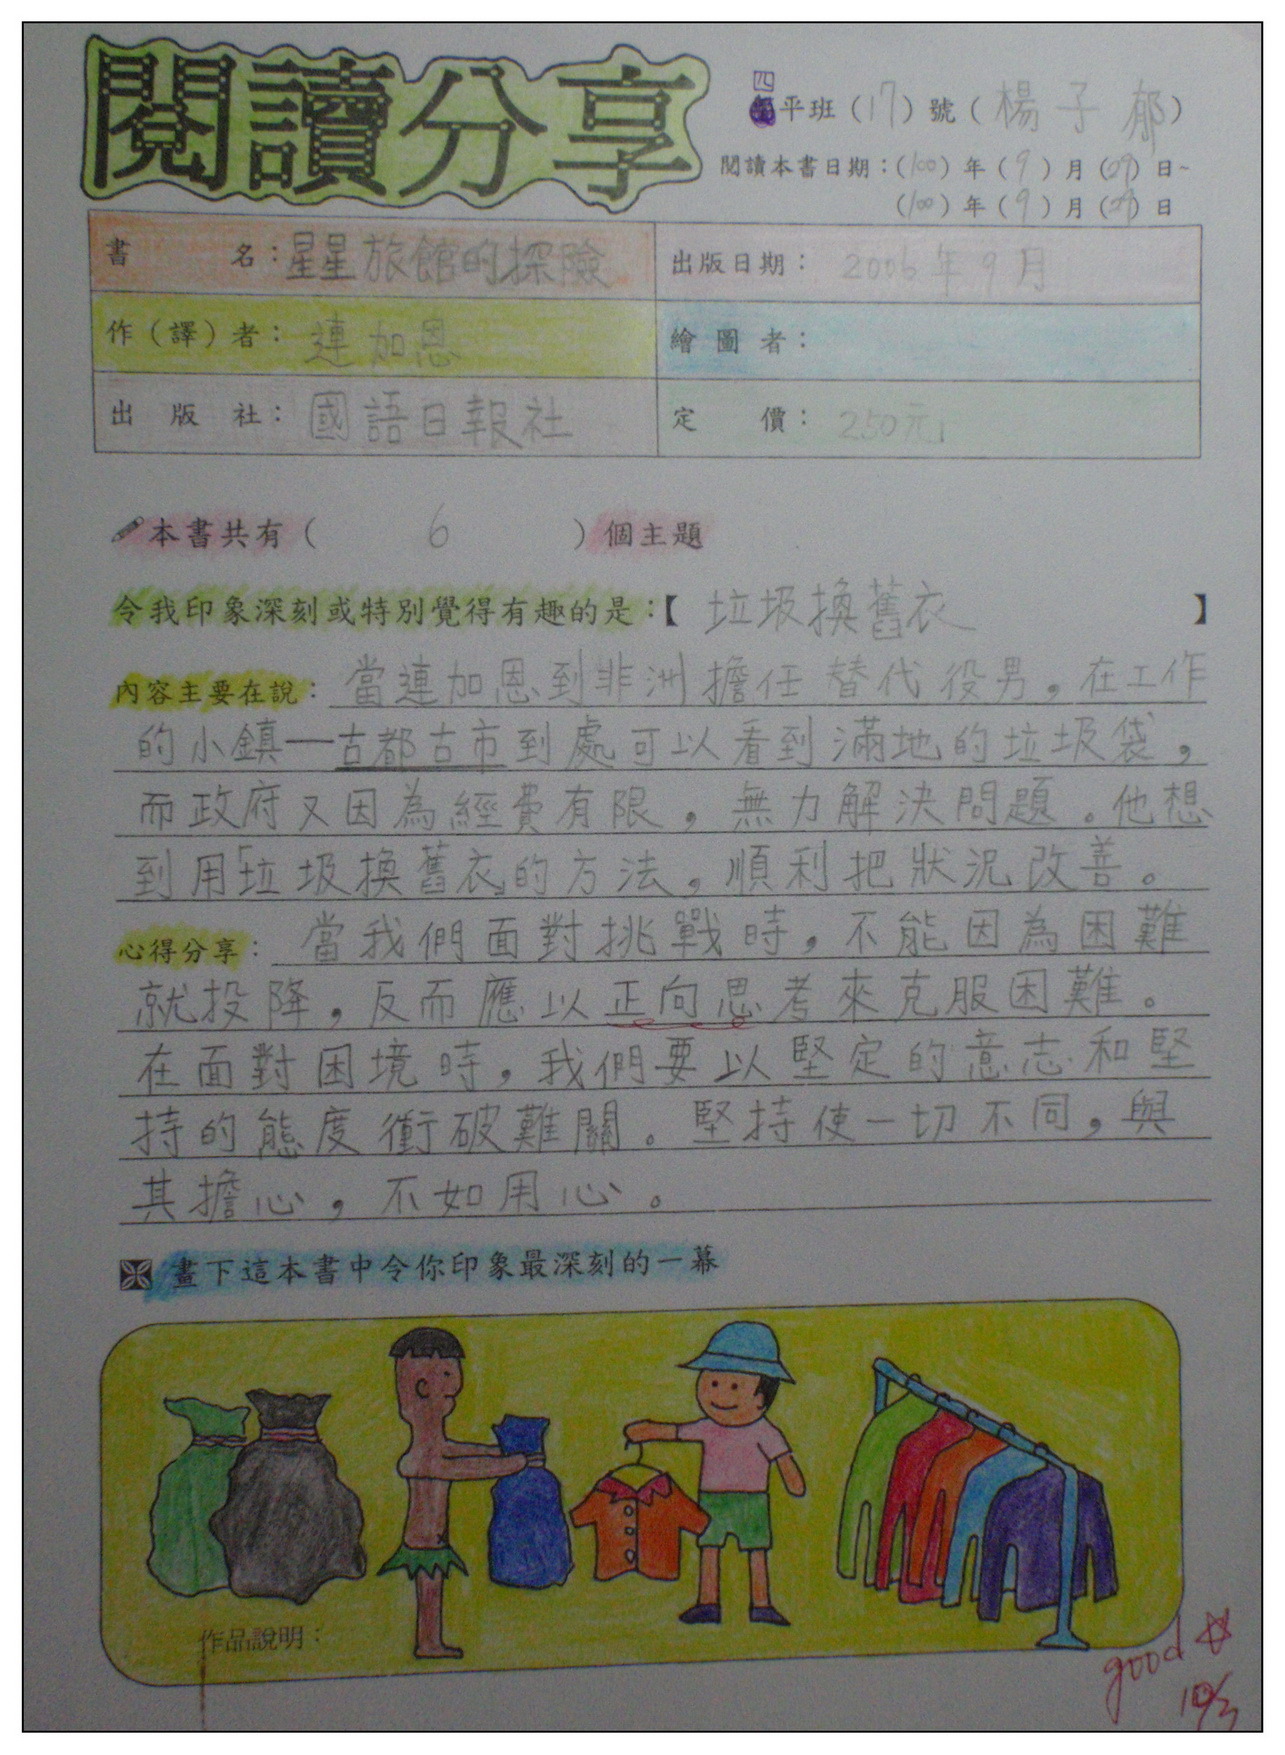 閱讀分享
四平班（17）號（楊子郁）
閱讀本書日期：（100）年（9）月（29）日~
（100）年（9）月（29）日
書名：星星旅館的探險
出版日期：2006年9月
作（譯）者：連加恩
繪圖者：
出版社：國語日報社
定價：250元
本書共有（6）個主題
令我印象深刻或特別覺得有趣的是：【垃圾換舊衣】
內容主要在說：當連加恩到非洲擔任替代役男，在工作
的小鎮—古都古市到處可以看到滿地的垃圾袋，
而政府又因為經費有限，無力解決問題。他想
到用「垃圾換舊衣」的方法，順利把狀況改善。
心得分享：當我們面對挑戰時，不能因為困難
就投降，反而應以正向思考來克服困難。
在面對困境時，我們要以堅定的意志和堅
持的態度衝破難關。堅持使一切不同，與
其擔心，不如用心。
畫下這本書中令你印象最深刻的一幕
作品說明：
good
10/3